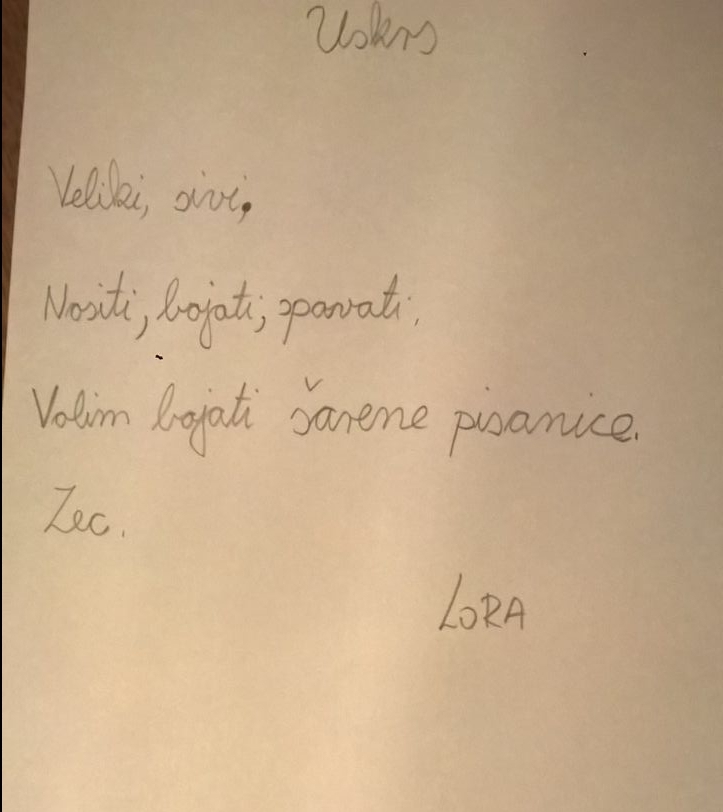 Uskrs
Veliki, sivi,
Nositi, bojati, spavati,
Volim bojati šarene pisanice.
Zec.
LORA